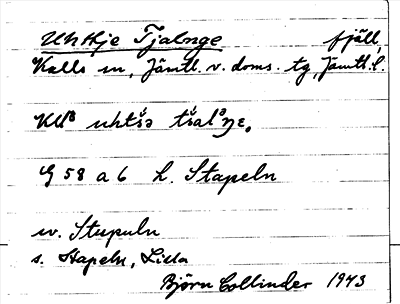 Uhtkje Tjalnge fjäll,
Kalls sn, Jämtl. v. doms. tg, Jämtl. l.
uhtśə tśalᵊŋɛ.
G 58 a 6 h. Stapeln
sv. Stupuln
s. Stapeln, Lilla
Björn Collinder 1943